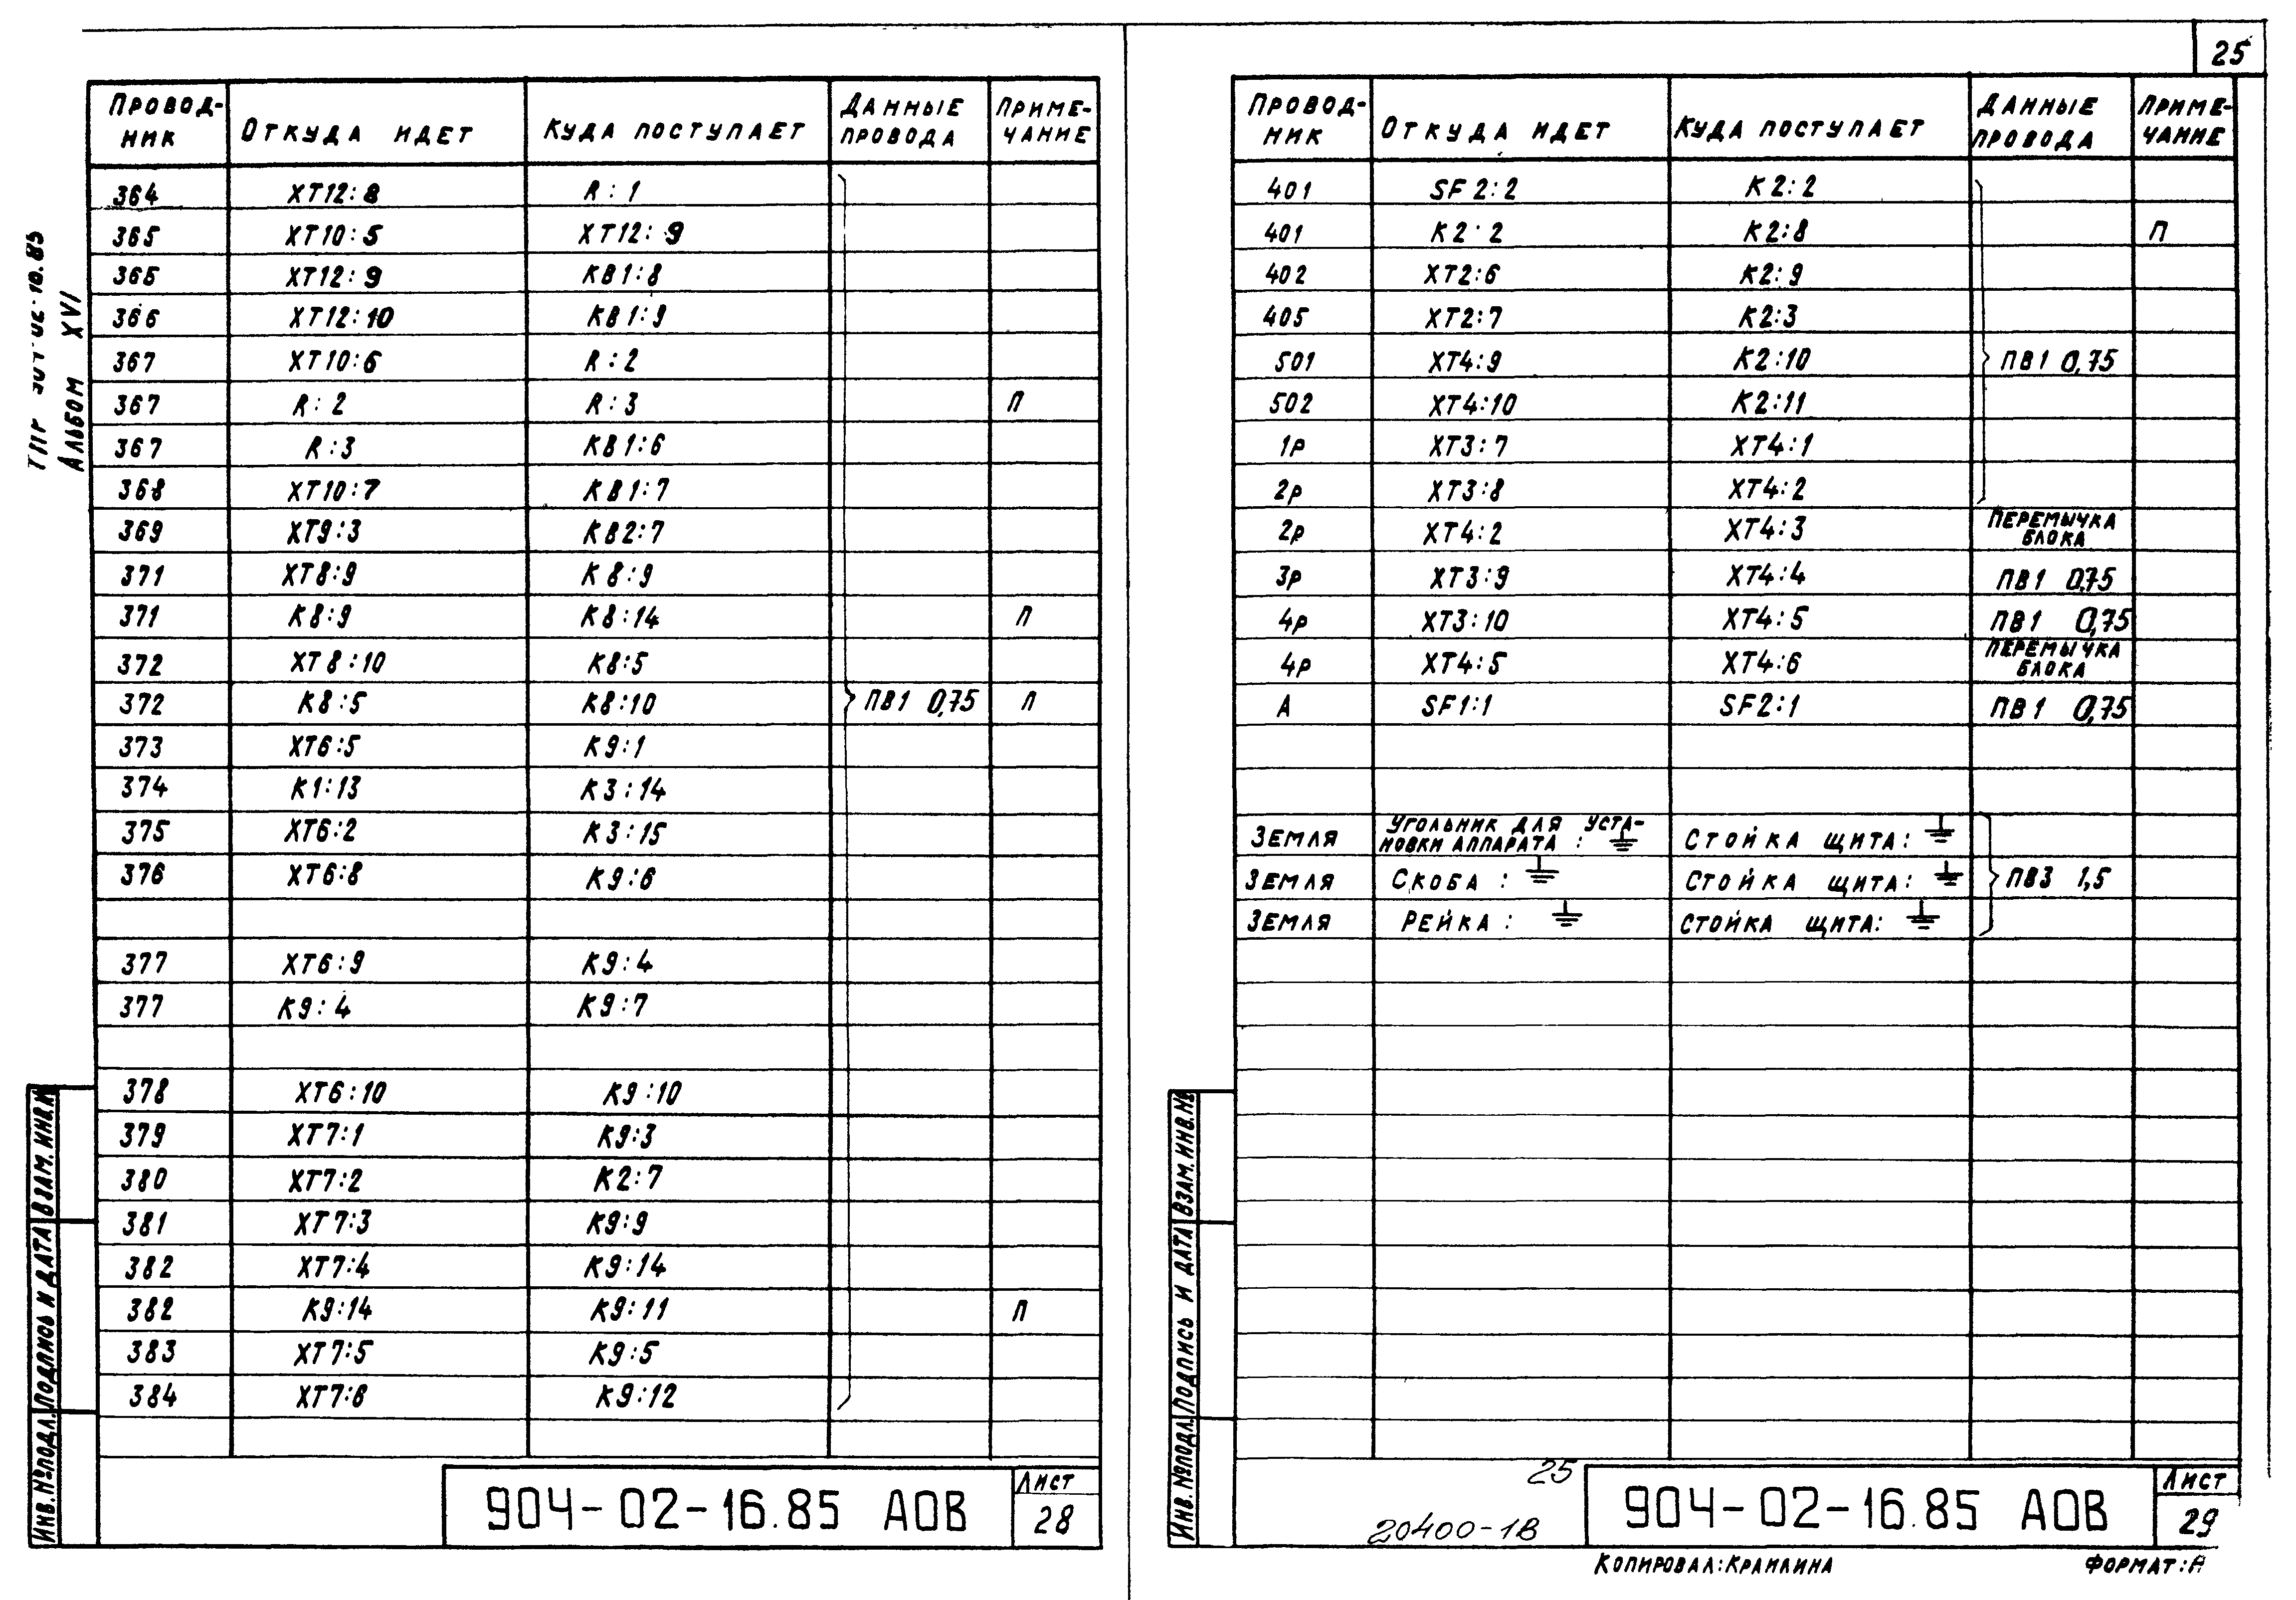 25
ТПР 904-02-16.85
Альбом XVI
Провод- Откуда идет Куда поступает Данные Приме-
ник провода чание
364 XT12:8 R:1
365 XT10:5 XT12:9
365 XT12:9 KB1:8
366 XT12:10 KB1:9
367 XT10:6 R:2
367 R:2 R:3 П
367 R:3 KB1:6
368 XT10:7 KB1:7
369 XT9:3 KB2:7
371 XT8:9 K8:9
371 K8:9 K8:14 П
372 XT8:10 K8:5
372 K8:5 K8:10 ПВ1 0,75 П
373 XT6:5 K9:1
374 K1:13 K3:14
375 XT6:2 K3:15
376 XT6:8 K9:6
377 XT6:9 K9:4
377 K9:4 K9:7
378 XT6:10 K9:10
379 XT7:1 K9:3
380 XT7:2 K2:7
381 XT7:3 K9:9
382 XT7:4 K9:14
382 K9:14 K9:11 П
383 XT7:5 K9:5
384 XT7:6 K9:12
Инв.№подл. Подпись и дата Взам.инв.№
904-02-16.85 АОВ
Лист
28
Провод- Откуда идет Куда поступает Данные Приме-
ник провода чание
401 SF2:2 K2:2
401 K2:2 K2:8 П
402 XT2:6 K2:9
405 XT2:7 K2:3
501 XT4:9 K2:10 ПВ1 0,75
502 XT4:10 K2:11
1р XT3:7 XT4:1
2р XT3:8 XT4:2
2р XT4:2 XT4:3 Перемычка
блока
3р XT3:9 XT4:4 ПВ1 0,75
4р XT3:10 XT4:5 ПВ1 0,75
4р XT4:5 XT4:6 Перемычка
блока
А SF1:1 SF2:1 ПВ1 0,75
Земля Угольник для уста-
новки аппарата: ⏚ Стойка щита: ⏚
Земля Скоба: ⏚ Стойка щита: ⏚ ПВ3 1,5
Земля Рейка: ⏚ Стойка щита: ⏚
Инв.№подл. Подпись и дата Взам.инв.№
25
20400-18
904-02-16.85 АОВ
Лист
29
Копировал: Краилина
Формат: А